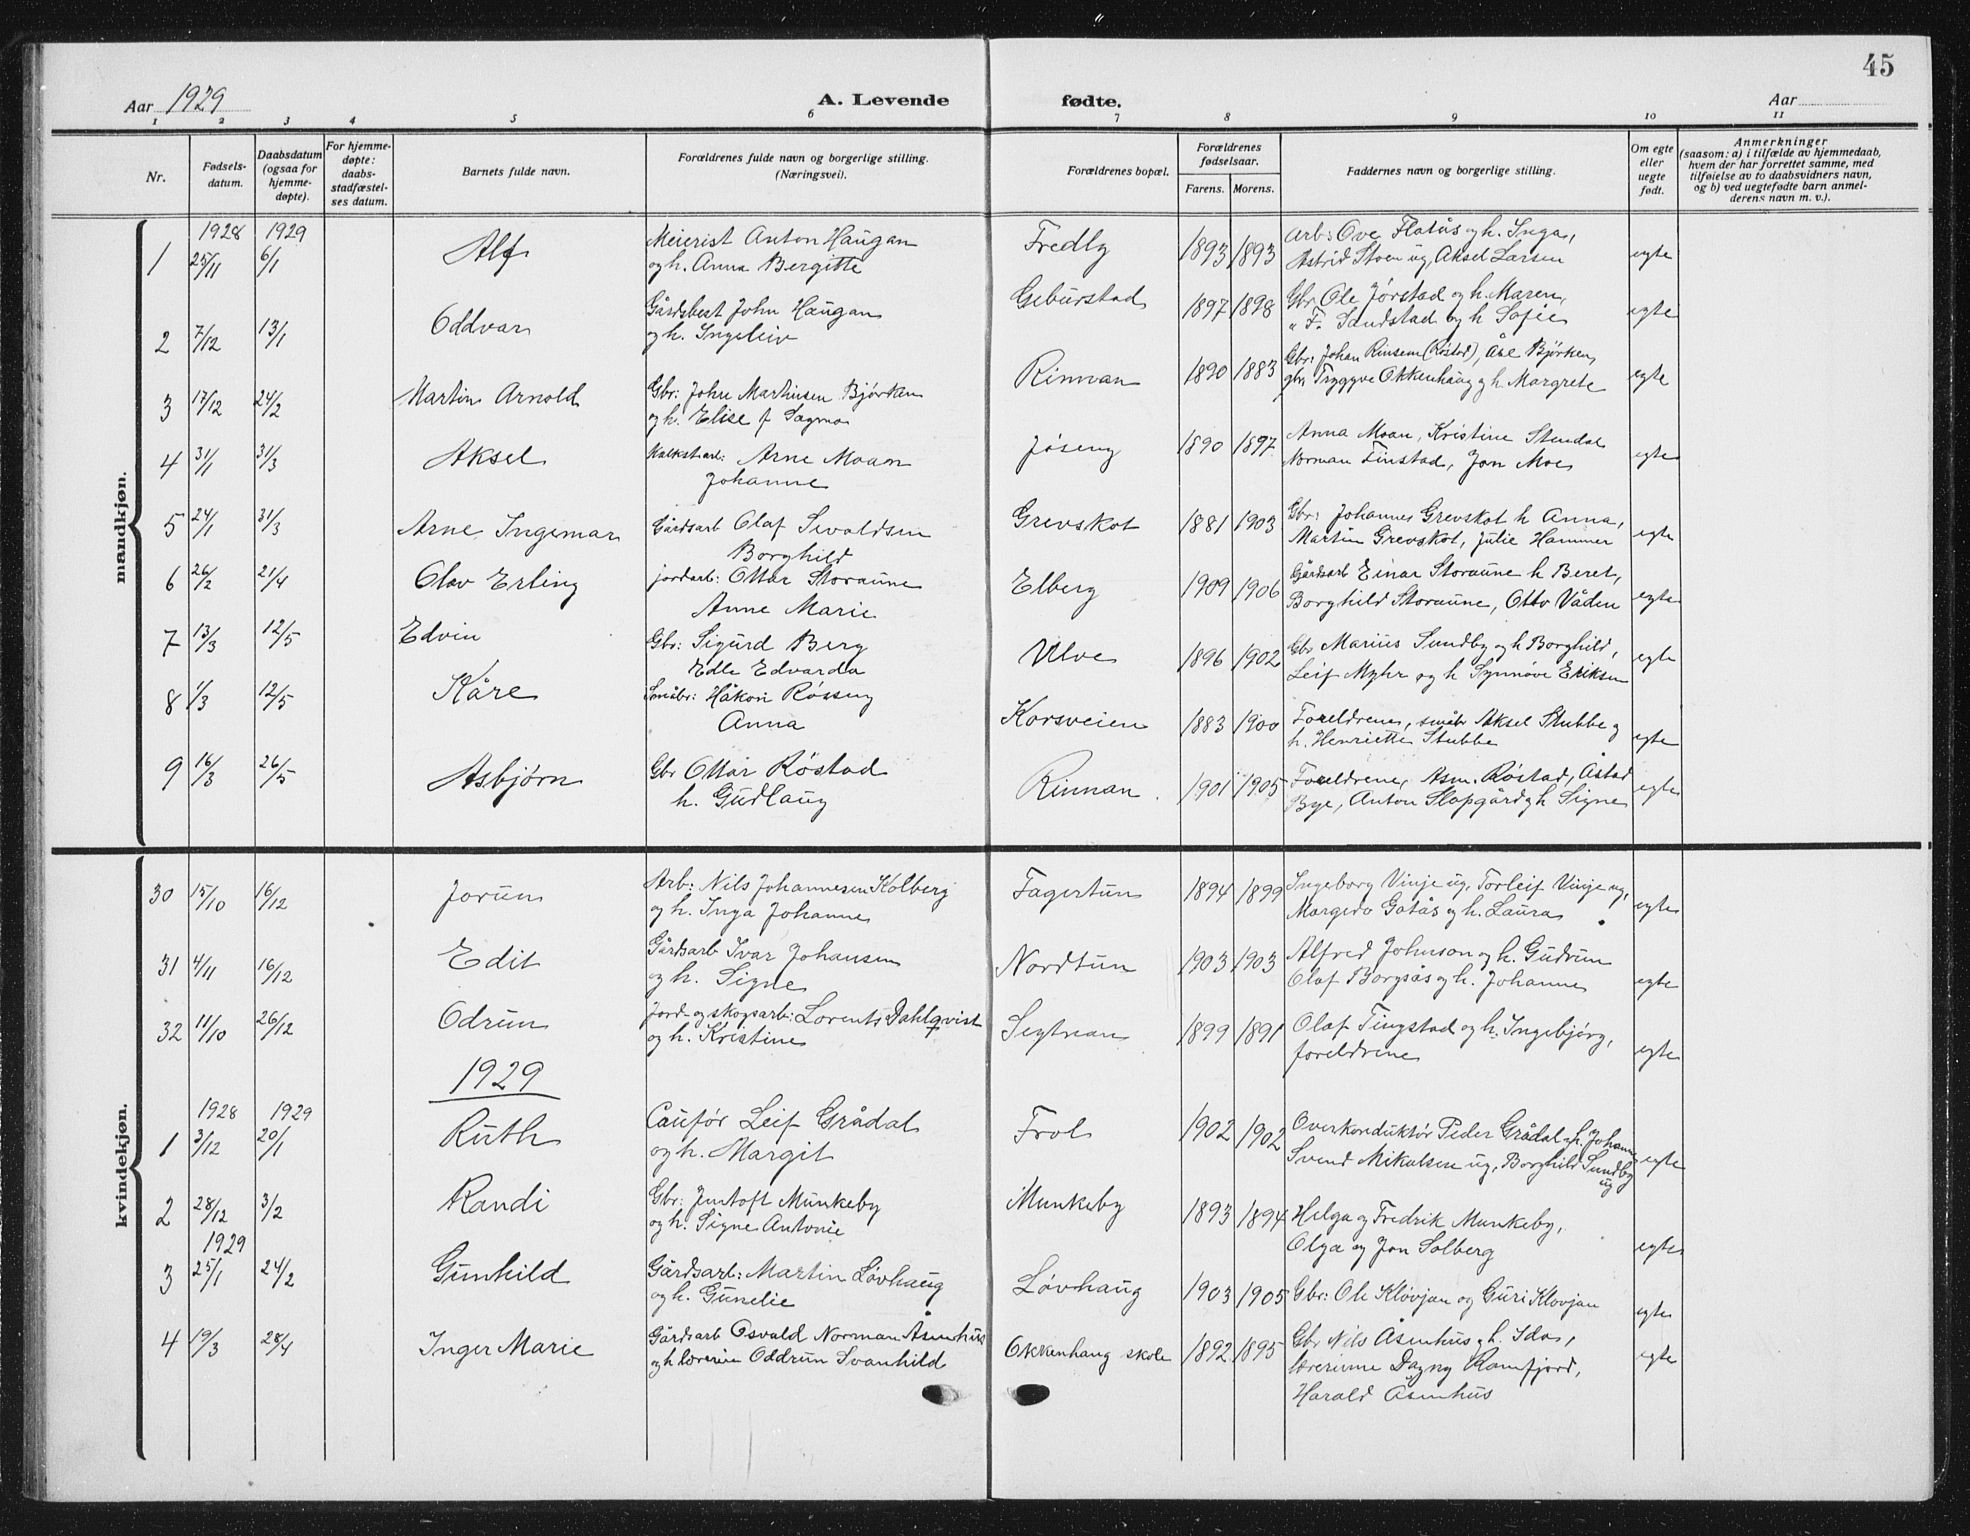 45
Aar 1929
A. Levende fødte.
Aar
1 2 3 4 5 6 7 8 9 10 11
Nr.
Fødsels-
datum.
Daabsdatum
(ogsaa for
hjemme-
døpte).
For hjemme-
døpte:
daabs-
stadfæstel-
ses datum.
Barnets fulde navn.
Forældrenes fulde navn og borgerlige stilling.
(Næringsvei).
Forældrenes bopæl.
Forældrenes
fødselsaar.
Farens. Morens.
Faddernes navn og borgerlige stilling.
Om egte
eller
uegte
født.
Anmerkninger
(saasom: a) i tilfælde av hjemmedaab,
hvem der har forrettet samme, med
tilføielse av to daabsvidners navn,
og b) ved uegtefødte barn anmel-
derens navn m. v.).
mandkjøn.
1928 1929
1 25/11 6/1 Alf
Meierist Anton Haugan
og h. Anna Bergitte
Fredly 1893 1893
Arb: Ove Flatås og h. Inga,
Astrid Stoen ug, Aksel Larsen
egte
2 7/12 13/1 Oddvar
Gårdsbest John Haugan
og h. Ingeleiv
Geburstad 1897 1898
Gbr Ole Jørstad og h. Maren,
" F. Sandstad og h Sofie
egte
3 17/12 24/2 Martin Arnold
Gbr: John Martinsen Bjørken
og h. Elise f Sagmo
Rinnan 1890 1883
Gbr: Johan Rinsem (Røstad), Åse Bjørken,
gbr Tryggve Okkenhaug og h. Margrete
egte
4 31/1 31/3 Aksel
Kalkstarb: Arne Moan
Johanne
Jøseng 1890 1897
Anna Moan, Kristine Stendal
Norman Finstad, Jon Moe
egte
5 24/1 31/3 Arne Ingemar
Gårdsarb Olaf Sivaldsen
Borghild
Grevskot 1881 1903
Gbr: Johannes Grevskot h Anna,
Martin Grevskot, Julie Hammer
egte
6 26/2 21/4 Olav Erling
jordarb: Ottar Storaune
Anne Marie
Elberg 1909 1906
Gårdsarb Einar Storaune h Beret,
Borghild Storaune, Otto Våden
egte
7 13/3 12/5 Edvin
Gbr: Sigurd Berg
Edle Edvarda
Ulve 1896 1902
Gbr Marius Sundby og h Borghild,
Leif Myhr og h Synnøve Eriksen
egte
8 1/3 12/5 Kåre
Småbr: Håkon Røsseng
Anna
Korsveien 1883 1900
Foreldrene, småbr Aksel Stubbe og
h. Henriette Stubbe
egte
9 16/3 26/5 Asbjørn
Gbr Ottar Røstad
h. Gudlaug
Rinnan 1901 1905
Foreldrene, Asm. Røstad, Astad
Bye, Anton Slapgård og h Signe
egte
kvindekjøn.
30 15/10 16/12 Jorun
Arb: Nils Johannesen Kolberg
og h. Inga Johanne
Fagertun 1894 1899
Ingeborg Vinje ug, Torleif Vinje ug,
Margido Gotås og h. Laura
egte
31 4/11 16/12 Edit
Gårdsarb Ivar Johansen
og h. Signe
Nordtun 1903 1903
Alfred Johnson og h. Gudrun
Olaf Borgsås og h. Johanne
egte
32 11/10 26/12 Odrun
Jord- og skogsarb: Lorents Dahlqvist
og h. Kristine
Segtnan 1899 1891
Olaf Tingstad og h. Ingebjørg,
foreldrene
egte
1929
1928 1929
1 3/12 20/1 Ruth
Caufør Leif Grådal
og h. Margit
Frol 1902 1902
Overkonduktør Peder Grådal og h. Johanne
Svend Mikalsen ug, Borghild Sundby
ug
egte
2 28/12 3/2 Randi
Gbr: Jentoft Munkeby
og h. Signe Antonie
Munkeby 1893 1894
Helga og Fredrik Munkeby,
Olga og Jon Solberg
egte
1929
3 25/1 24/2 Gunhild
Gårdsarb: Martin Løvhaug
og h. Gunelie
Løvhaug 1903 1905
Gbr: Ole Kløvjan og Guri Kløvjan
egte
4 19/3 28/4 Inger Marie
Gårdsarb Osvald Norman Åsmhus
og h lærerine Oddrun Svanhild
Okkenhaug skole 1892 1895
Gbr Nils Åsmhus og h. Ida,
lærerinne Dagny Ramfjord,
Harald Åsmhus
egte